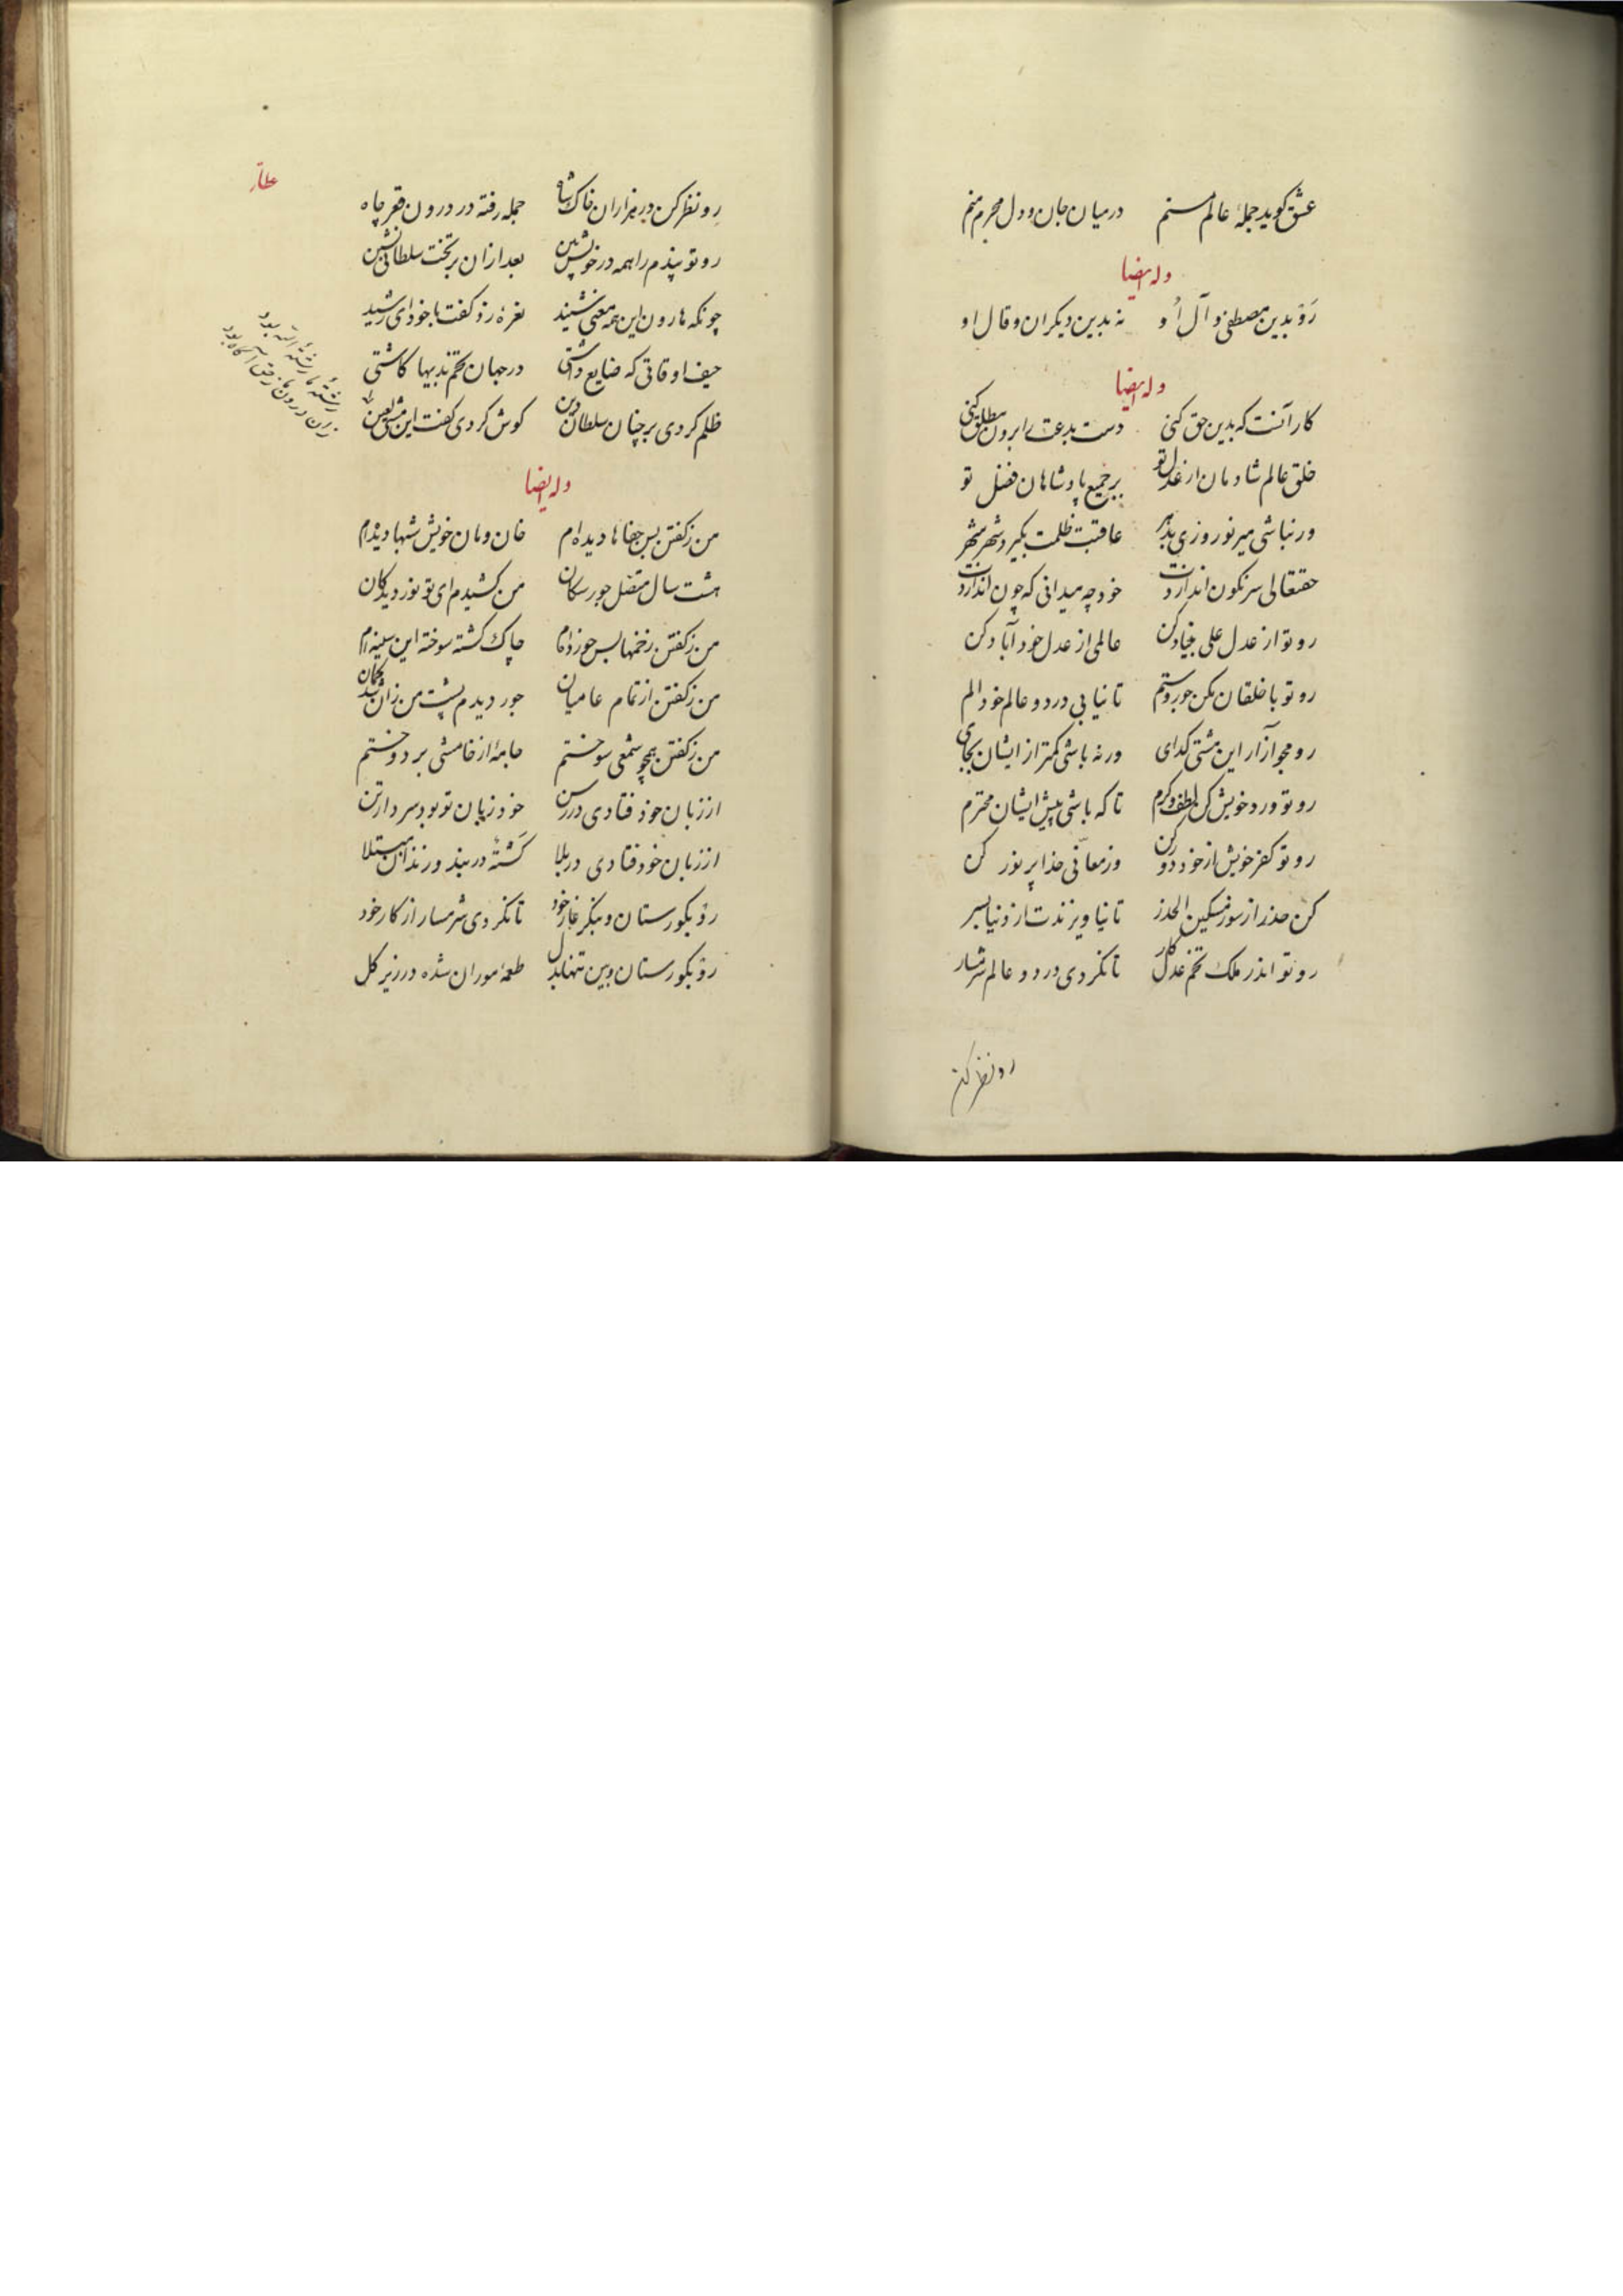 عشق گوید جملهٔ عالم منم درمیان جان و دل محرم منم
وله ایضا
رَوْ بدین مصطفی و آل اُو نه بدین دیکران و قال او
وله ایضا
کار آنست که بدین حق کنی دست بدعت را برون مطلق کنی
خلق عالم شادمان از عدل تو بر جمیع پادشاهان فضل تو
ور نباشی میر نوروزی بدهر عاقبت ظلمت بگیرد شهر شهر
حقتعالی سرنکون اندازدت خود چه میدانی که چون اندازدت
رو تو از عدل علی بنیاد کن عالمی از عدل خود آباد کن
رو تو با خلقان مکن جور و ستم تا نیابی در دو عالم خود الم
رو مجو آزار این مشتی کدای ورنه باشی کمتر از ایشان بجای
رو تو ورد خویش کن لطف و کرم تا که باشی پیش ایشان محترم
رو تو کفر خویش از خود دور کن وز معانی خدا پر نور کن
کن حذر از سوز مسکین الحذر تا نیاویزندت از دنیا بسر
رو تو اندر ملک تخم عدل کار تا نکردی در دو عالم شرمسار
رو نظر کن
عطار
رو نظر کن در هزاران خاک شاه جمله رفته در درون قعر چاه
رو تو پندم را همه در خویش بین بعد ازان بر تخت سلطانی نشین
چونکه هارون این همه معنی شنید نعرهٔ زد گفت با خود ای رشید
حیف اوقاتی که ضایع داشتی در جهان تخم بدیها کاشتی
ظلم کردی بر چنان سلطان دین کوش کردی گفت این مشتی لعین
رشتهٔ ما رشتهٔ الله بود
زان درون ما ز حق آگاه بود
وله ایضا
من ز کفتن بس جفاها دیده‌ام خان و مان خویش شبها دیده‌ام
هشت سال متصل جور سکان من کشیدم ای تو نور دیدکان
من ز کفتن زخمها بس خورده‌ام چاک کشته سوخته این سینه‌ام
من ز کفتن از تمام عامیان جور دیدم پشت من زان شد کمان
من ز کفتن همچو شمعی سوختم جامهٔ از خامشی بر دوختم
از زبان خود فتادی در رسن خود زبان تو بود سردار تن
از زبان خود فتادی در بلا کَشتهٔ در بند و زندان مبتلا
رو بکورستان و بنکر غار خود تا نکردی شرمسار از کار خود
رو بکورستان و بین تنها بدل طعمهٔ موران شده در زیر کل